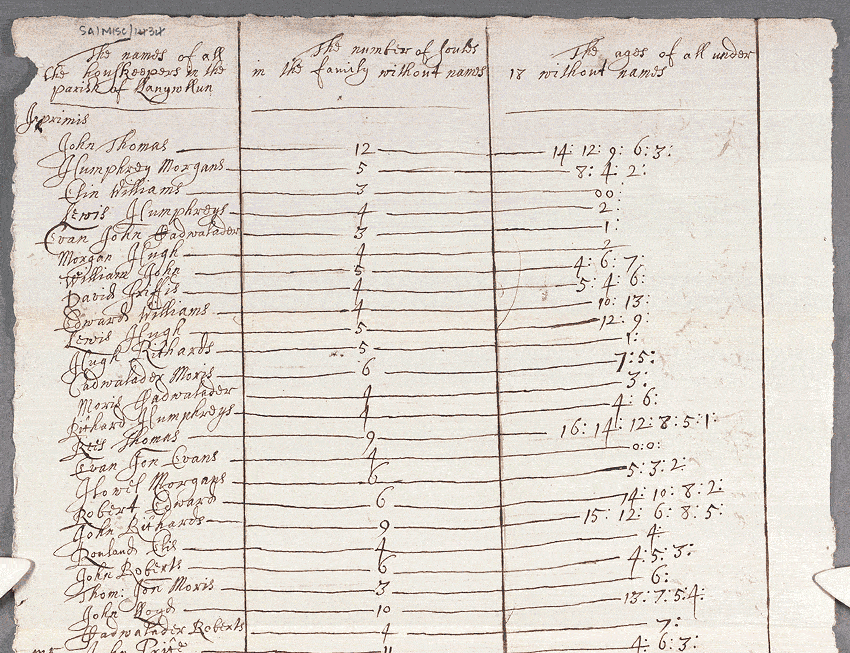 SA/MISC/1434
The names of all the houskeepers in the parish of Llangwllun
The number of soules in the family without names
The ages of all under 18 without names
Inprimis
John Thomas 12 14: 12: 9: 6: 3:
Humphrey Morgans 5 8: 4: 2:
Elin Williams 3 00:
Lewis Humphreys 4 2:
Evan John Cadwalader 3 1:
Morgan Hugh 4 2
William John 5 4: 6: 7:
David Griffis 4 5: 4: 6:
Edward Williams 4 10: 13:
Lewis Hugh 5 12: 9:
Hugh Richards 5 1:
Cadwalader Moris 6 7: 5:
Moris Cadwalader 4 3:
Richard Humphreys 4 4: 6:
Reis Thomas 9 16: 14: 12: 8: 5: 1:
Evan Jon Evans 4 0:0:
Howel Morgans 6 5: 3: 2:
Robert Edward 6 14: 10: 8: 2:
John Richards 9 15: 12: 6: 8: 5:
Rouland Elis 4 4:
John Roberts 6 4: 5: 3:
Thom: Jon Moris 3 6:
John Lloyd 10 13: 7: 5: 4:
Cadwalader Roberts 4 7:
John Price 4: 6: 3: